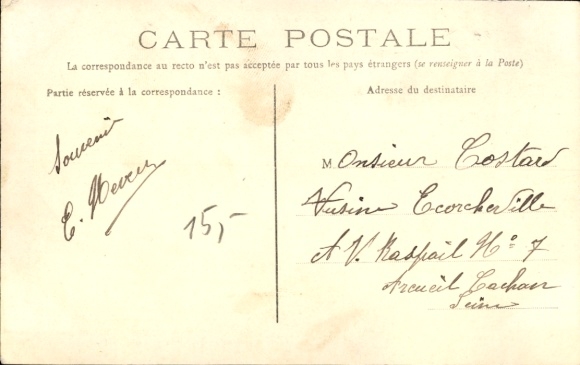 CARTE POSTALE
La correspondance au recto n'est pas acceptée par tous les pays étrangers (se renseigner à la Poste)
Partie réservée à la correspondance :
Adresse du destinataire
Souvenir
E.
15,-
Monsieur Costard
Vusine Ecorcheville
A V. Raspail No 7
Arcueil Cachan
Seine